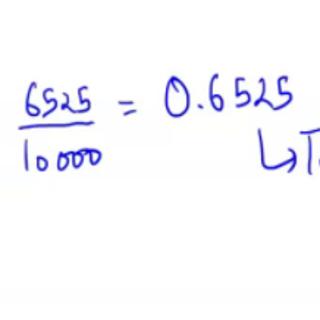 6525/10000 = 0.6525